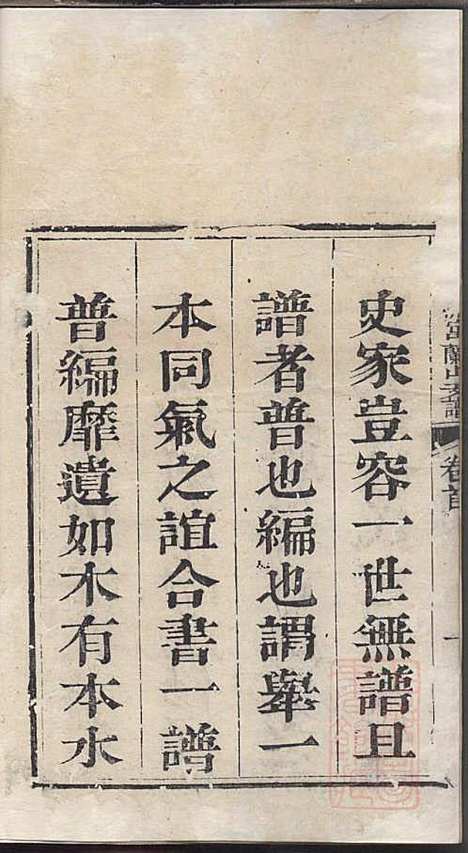 史家豈容一世無譜且
譜者普也編也謂舉一
本同氣之誼合書一譜
普編靡遺如木有本水
卷首
一